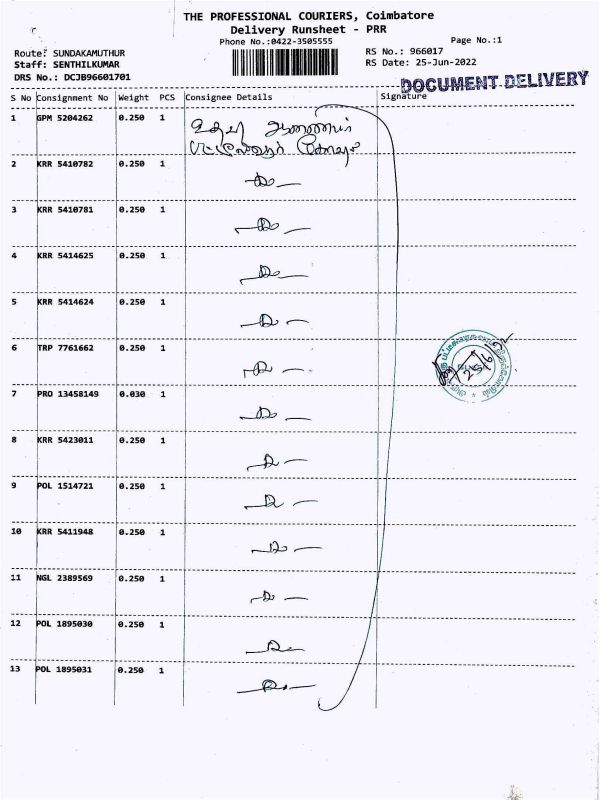 THE PROFESSIONAL COURIERS, Coimbatore
Delivery Runsheet - PRR
Phone No.:0422-3505555
Page No.:1
Route: SUNDAKAMUTHUR
RS No.: 966017
Staff: SENTHILKUMAR
RS Date: 25-Jun-2022
DRS No.: DCJB96601701
DOCUMENT DELIVERY
S No Consignment No Weight PCS Consignee Details Signature
1 GPM 5204262 0.250 1
உதவி ஆணையர்
2 KRR 5410782 0.250 1
3 KRR 5410781 0.250 1
4 KRR 5414625 0.250 1
5 KRR 5414624 0.250 1
6 TRP 7761662 0.250 1
7 PRO 13458149 0.030 1
8 KRR 5423011 0.250 1
9 POL 1514721 0.250 1
10 KRR 5411948 0.250 1
11 NGL 2389569 0.250 1
12 POL 1895030 0.250 1
13 POL 1895031 0.250 1